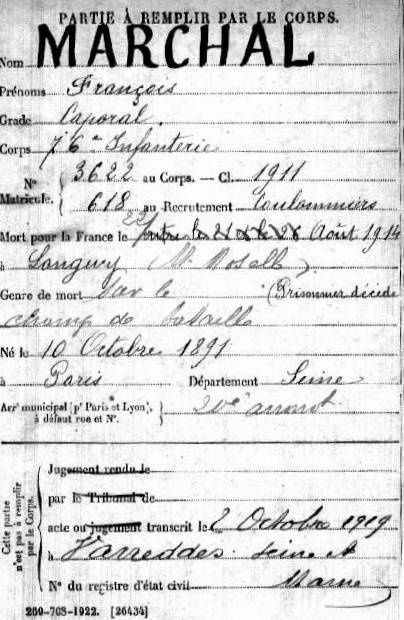 PARTIE À REMPLIR PAR LE CORPS.
Nom MARCHAL
Prénoms François
Grade Caporal.
Corps 76e Infanterie
N° Matricule. { 3622 au Corps. — Cl. 1911
618 au Recrutement Coulommiers
Mort pour la France le 22 entre le 21 & le 26 Août 1914
à Longwy (Mt Moselle)
Genre de mort Sur le (Prisonnier décédé
champ de bataille
Né le 10 Octobre 1891
à Paris Département Seine
Arrt municipal (pr Paris et Lyon), à défaut rue et N°. } 20e arront
Cette partie n'est pas à remplir par le Corps.
Jugement rendu le
par le Tribunal de
acte ou jugement transcrit le 2 Octobre 1919
à Varreddes Seine et
N° du registre d'état civil Marne
269-708-1922. [26434]